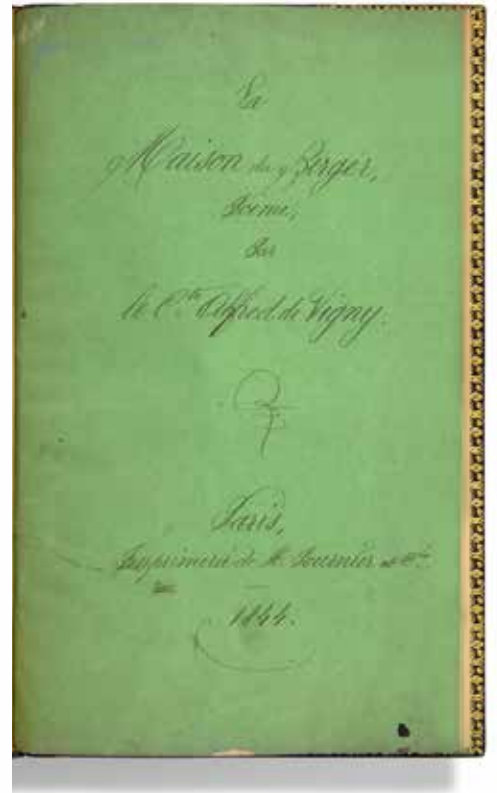 La
Maison du Berger,
Poème,
Par
le C.te Alfred de Vigny.
Paris,
Imprimerie de H. Fournier et C.ie
1844.